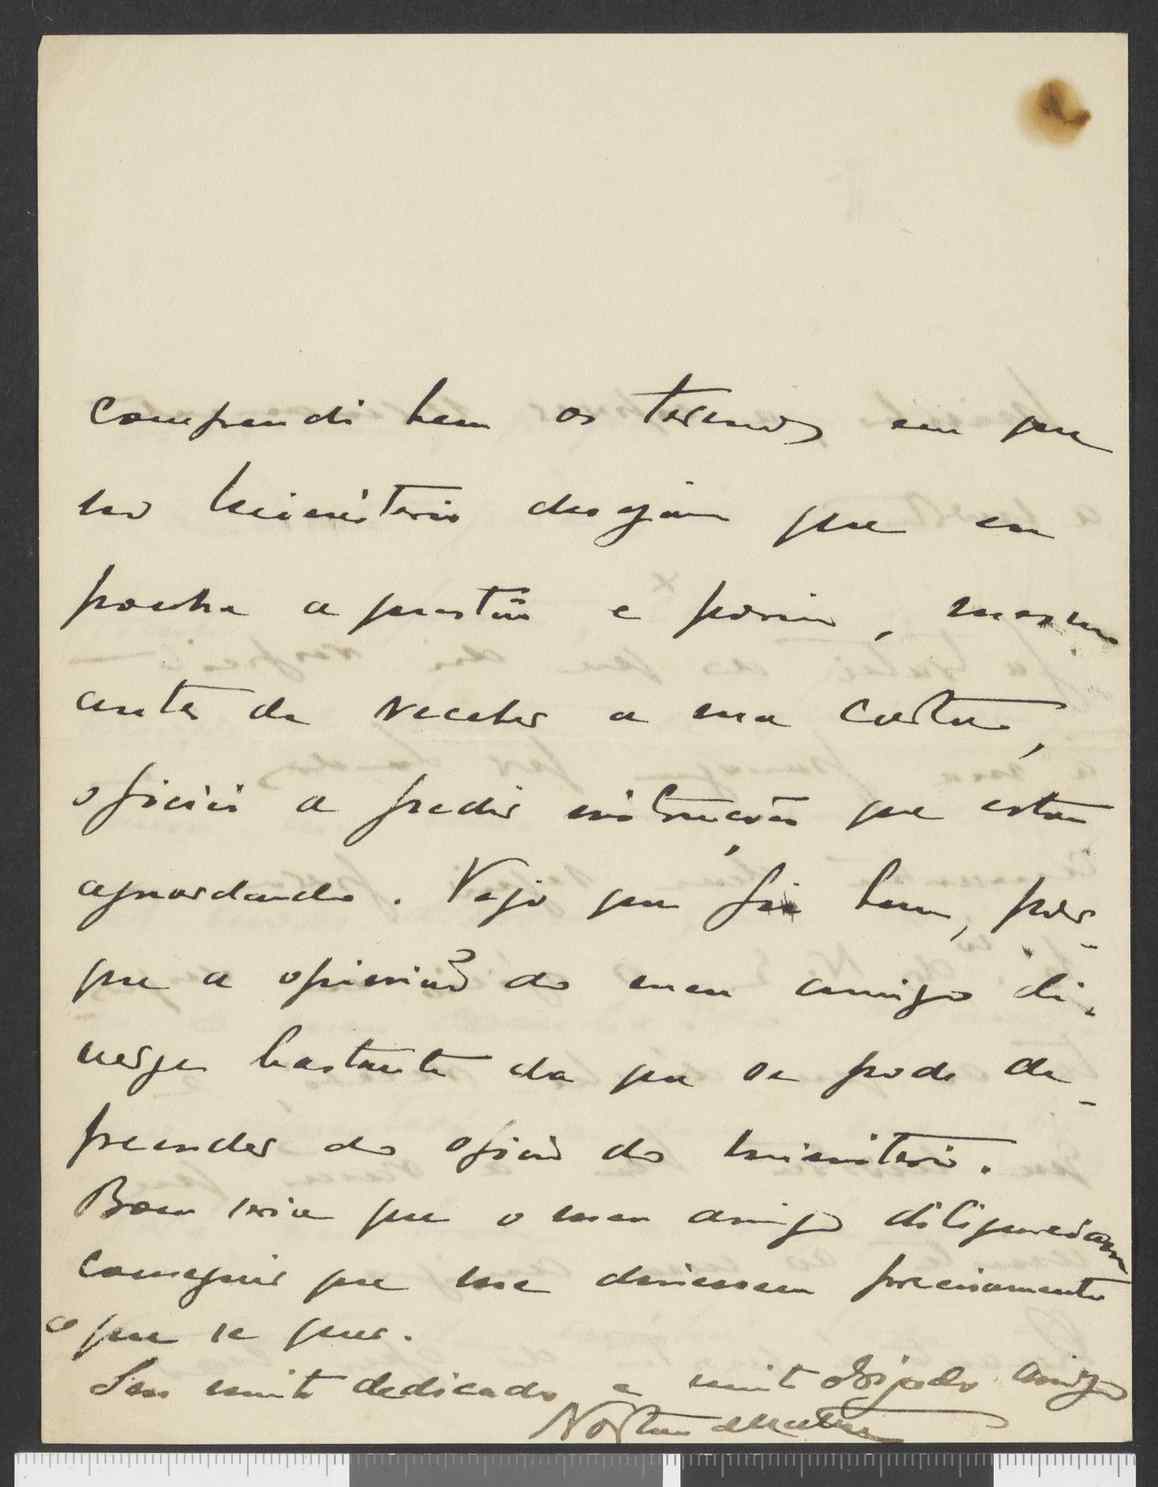 comprendi bem os termos em que
no Ministerio desejam que eu
ponha a questão e porisso, mesmo
antes de receber a sua carta,
oficiei a pedir instruções que estou
aguardando. Vejo que fiz bem, por-
que a opinião do meu amigo di-
verge bastante da que se pode de-
preender do oficio do Ministerio.
Bom seria que o meu amigo diligenciasse
conseguir que me dissessem precisamente
o que se quer.
Seu muito dedicado e muito obrigado amigo
Norton de Matos